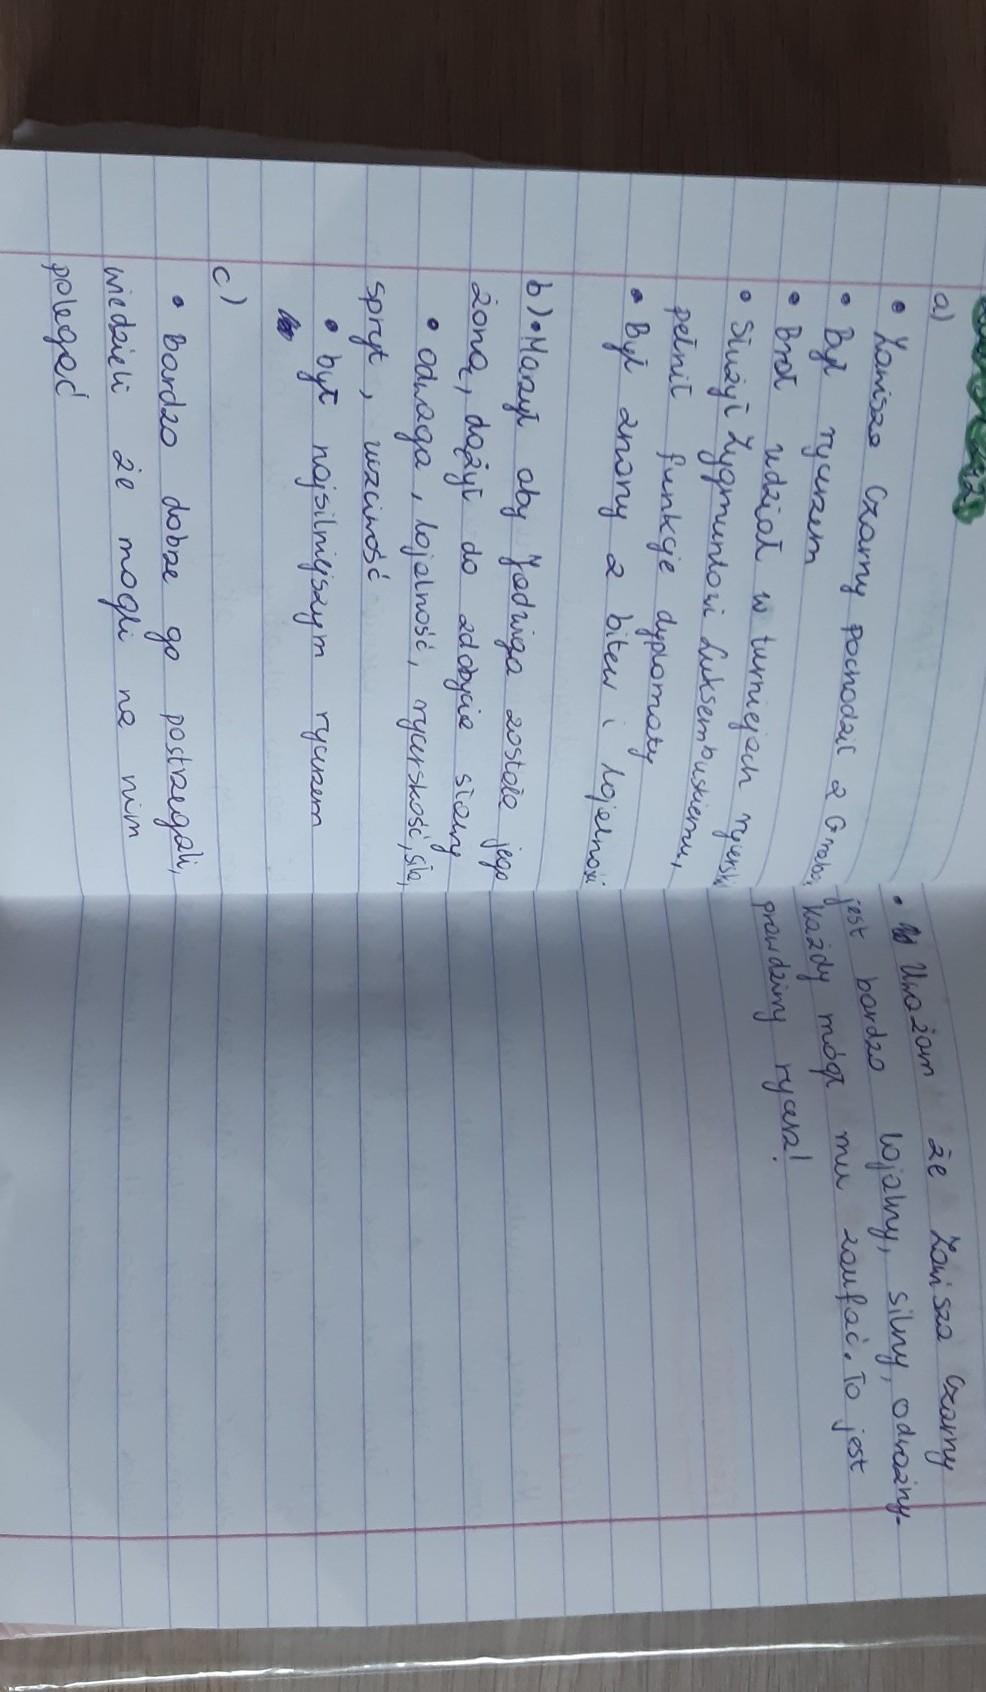 a)
• Zawisza Czarny pochodził z Grabo
• Był rycerzem
• Brał udział w turniejach rycersk
• Służył Zygmuntowi Luksembuskiemu,
pełnił funkcje dyplomaty
• Był znany z bitew i lojalności
b) • Marzył aby Jadwiga została jego
żoną, dążył do zdobycia sławy
• odwaga, lojalność, rycerskość, siła,
spryt, uczciwość
• był najsilniejszym rycerzem
c)
• Bardzo dobrze go postrzegali,
wiedzieli że mogli na nim
polegać
• Uważam że Zawisza Czarny
jest bardzo lojalny, silny, odważny.
każdy mógł mu zaufać. To jest
prawdziwy rycerz!